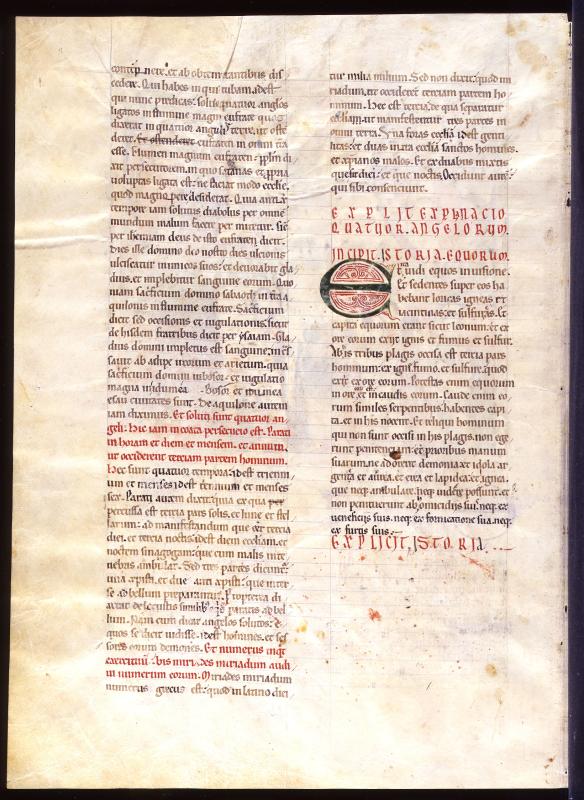 cedere. Qui habes inquit tubam. idest
qui nunc predicas: solue quatuor anglos
ligatos in flumine magno eufrate quos
dixerat in quatuor angulis terre. ut oste
deret. Et ostenderet eufraten in omni tra
esse. Flumen magnum eufraten: pplm di
xit persecutorem. in quo satanas et ppria
uoluptas ligata est: ne faciat modo ecclie.
quod magnopere desiderat. Quia ante
tempore iam solutus diabolus per omnem
mundum malum facere per
per iheremiam deus de isto eufraten dicit.
Dies ille domino deo nostro dies ultionis
ulciscatur inimicos suos: et deuorabit gla
dius. et implebitur sanguine eorum. Quo
niam sacficium domino sabaoth in tra a
quilonis in flumine eufrate. Sacficium
dicit sed occisionis et iugulationis. sicut
de hisdem fratribus dicit per ysaiam. Gla
dius domini impletus est sanguine.
sauit ab adipe taurorum et arietum. quia
sacficium domini in bosor. et iugulatio
magna in idumea. Bosor et idumea
esau ciuitates sunt. De aquilone autem
iam diximus. Et soluti sunt quatuor an
geli. Hic iam inchoata persecutio est. Parati
in horam et diem et mensem. et annum.
ut occiderent terciam partem hominum.
Hec sunt quatuor tempora: idest trienni
um et menses idest triennium et menses
sex. Parati autem dixit: quia ex qua per
percussa est tercia pars solis. et lune et stel
larum: ad manifestandum que eet tercia
diei. et tercia noctis: idest diem eccliam. et
noctem sinagogam: que cum malis inte
nebris ambulat. Sed tres partes dicunt:
una xpisti. et due anti xpisti: que inter
se ad bellum preparantur. Propterea di
xerat de locustis similibus equis paratis ad bel
lum. Nam cum dicat angelos solutos:
quos se dicit uidisse. idest homines. et ses
sores eorum demones. Et numerus inquit
exercituum bis miriades miriadum audi
ui numerum eorum. Miriades miriadum
numerus grecus est: quod in latino dici
tur milia milium. Sed non dixit: quod mi
riadum. ut occiderent terciam partem ho
minum. Hec est tercia: de qua separatur
ecclia: ut manifestentur tres partes in
omni terra. Una foras eccliam idest genti
litas: et duas intra eccliam sanctos homines.
et xpianos malos. Et ex duabus mixtis
que sit diei: et que noctis. Occidunt autem
qui sibi consenciunt.
EXPLICIT EXPLANACIO
QUATUOR. ANGELORUM.
INCIPIT. ISTORIA. EQUORUM.
Et uidi equos in uisione.
Et sedentes super eos ha
bebant loricas igneas et
iacintinas: et sulfureas. Et
capita equorum erant sicut leonum: et ex
ore eorum exiit ignis et fumus et sulfur.
Ab his tribus plagis occisa est tercia pars
hominum: ex igni. fumo. et sulfure. quod
exiit ex ore eorum. Potestas enim equorum
in ore. et in caudis eorum. Caude enim eo
rum similes serpentibus. habentes capi
ta. et in his nocent. Et reliqui hominum
qui non sunt occisi in his plagis. non ege
runt penitenciam: ex prioribus manuum
suarum. ne adorent demonia: et idola ar
gentea et aurea. et erea et lapidea. et lignea.
que neque ambulare. neque uidere possunt. et
non penituerunt ab homicidiis suis. neque ex
ueneficiis suis. neque ex fornicatione sua. neque
ex furtis suis.
EXPLICIT, ISTORIA.